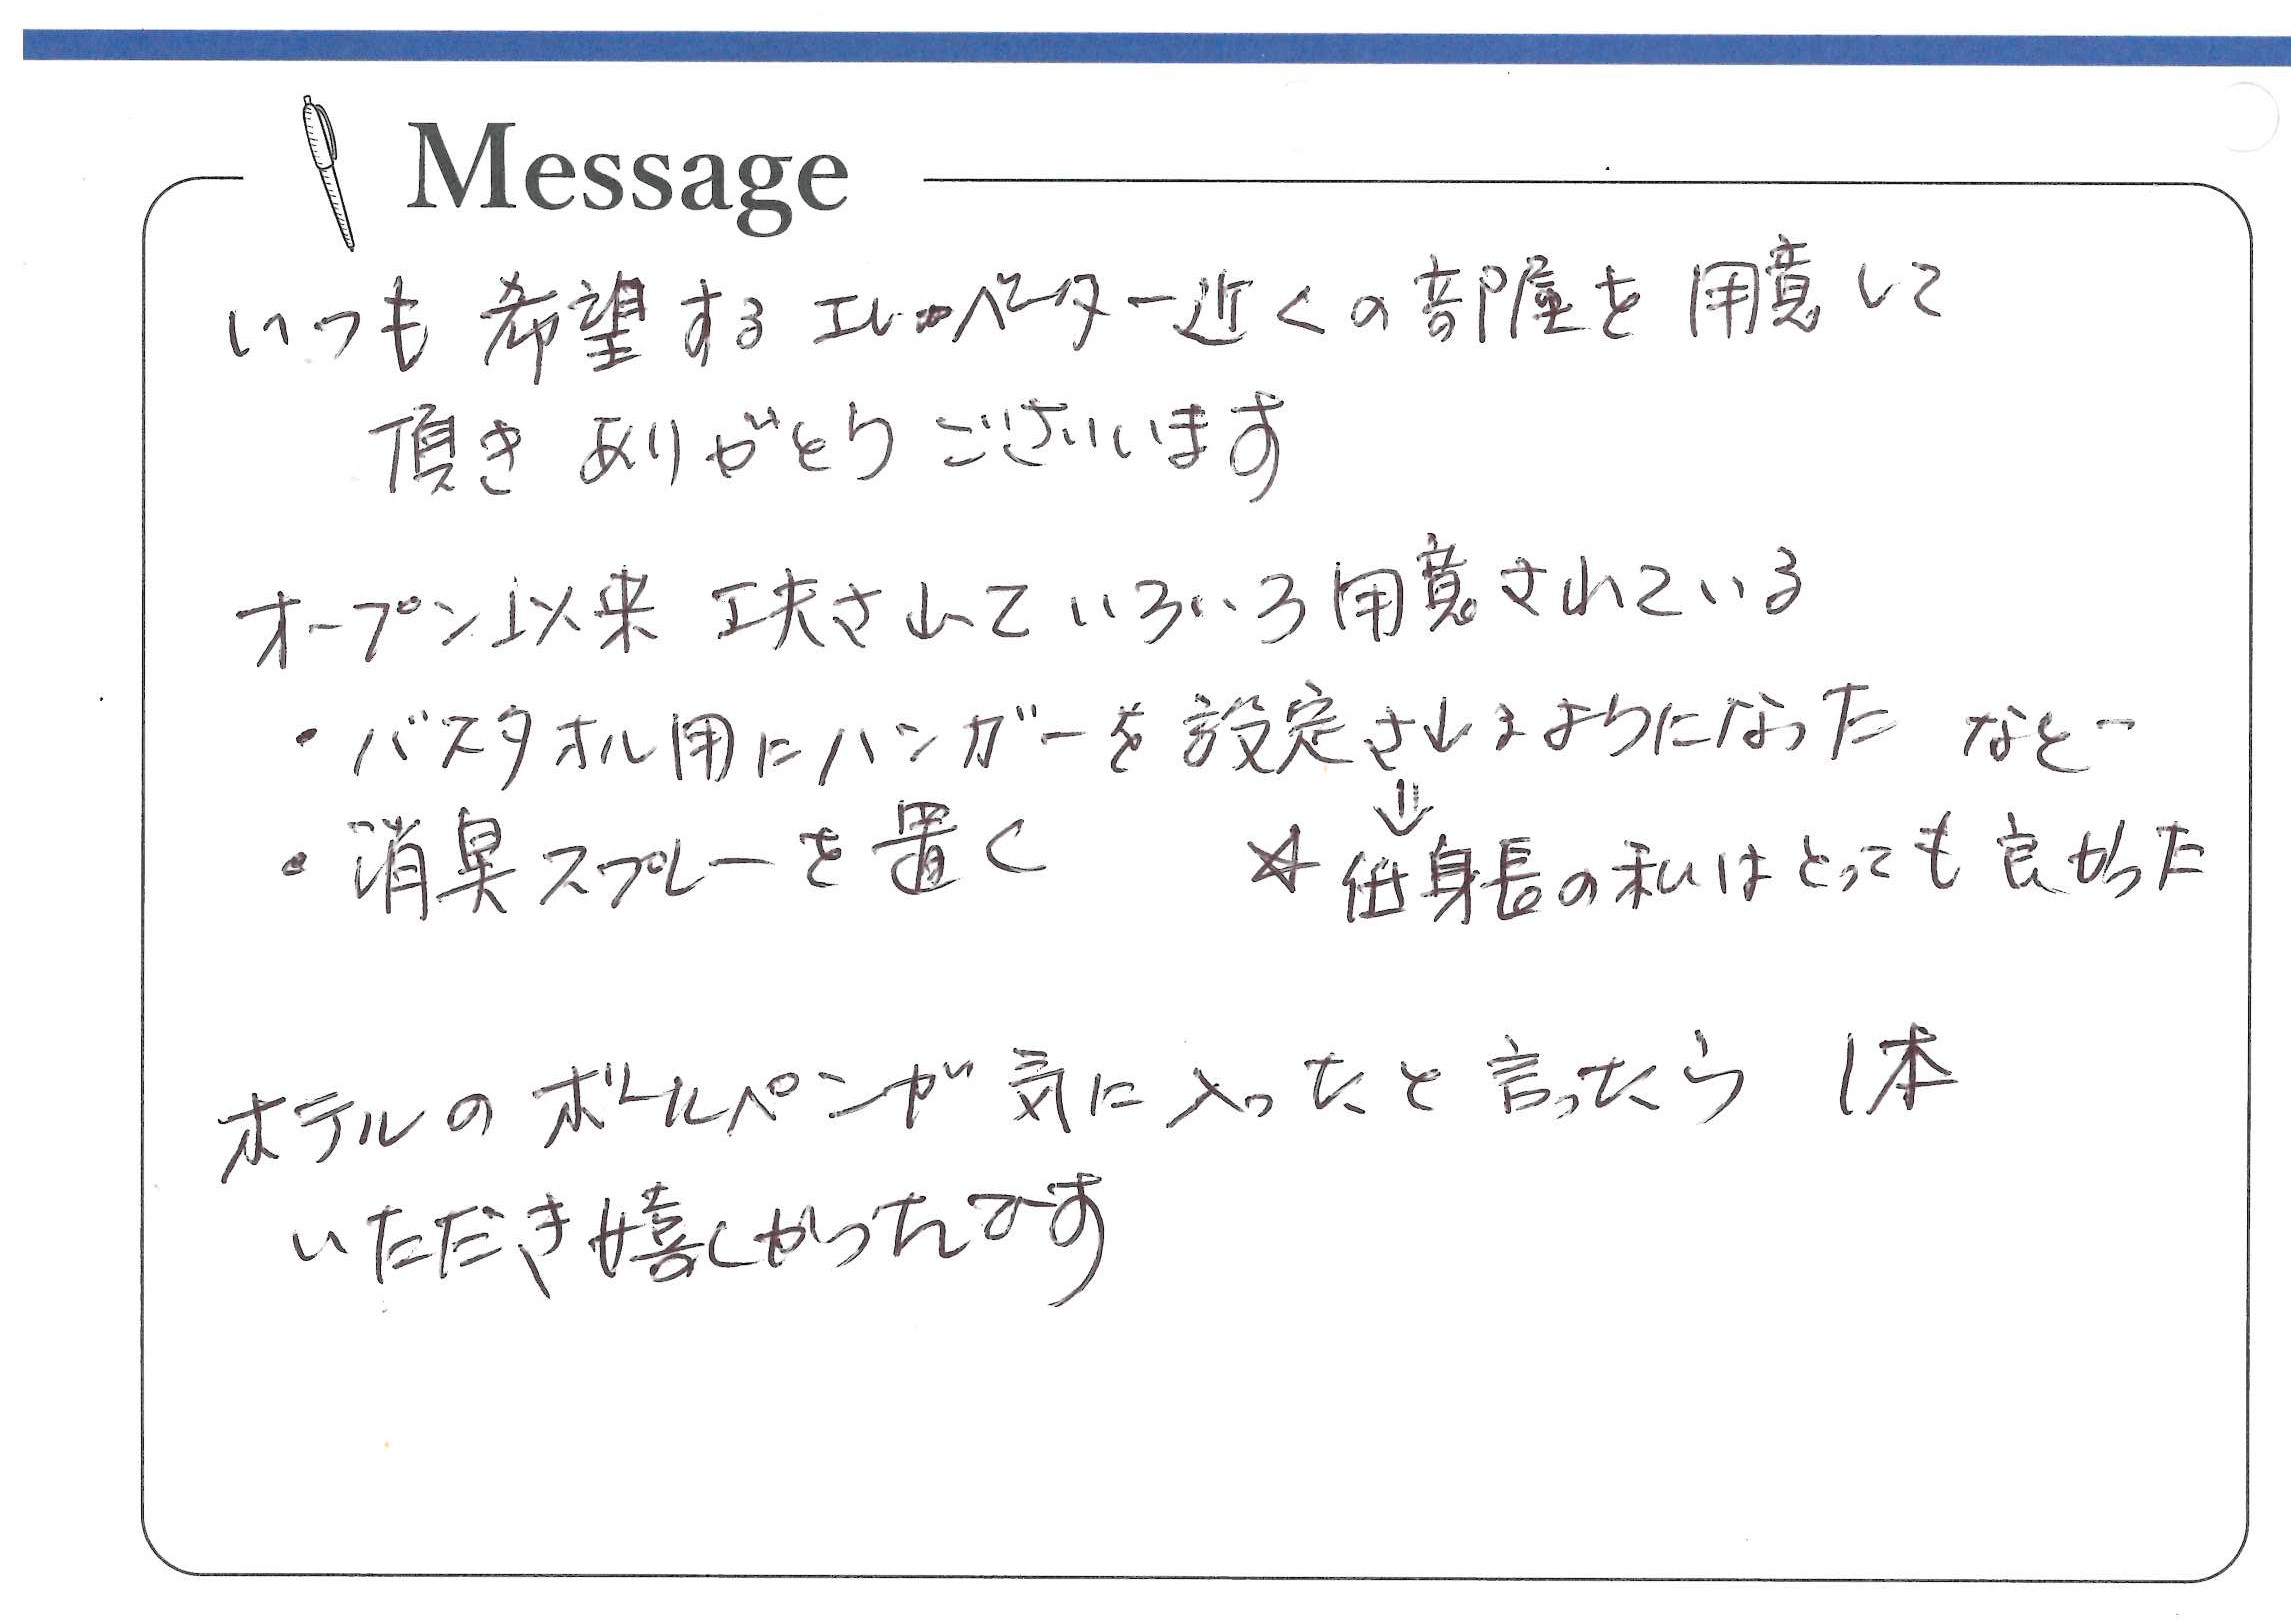 Message
いつも希望するエレベーター近くの部屋を用意して
頂きありがとうございます
オープン以来 工夫されていろいろ用意されている
・バスタオル用にハンガーを設定されるようになった など
・消臭スプレーを置く
↓
☆低身長の私はとっても良かった
ホテルのボールペンが気に入ったと言ったら 1本
いただき嬉しかったです